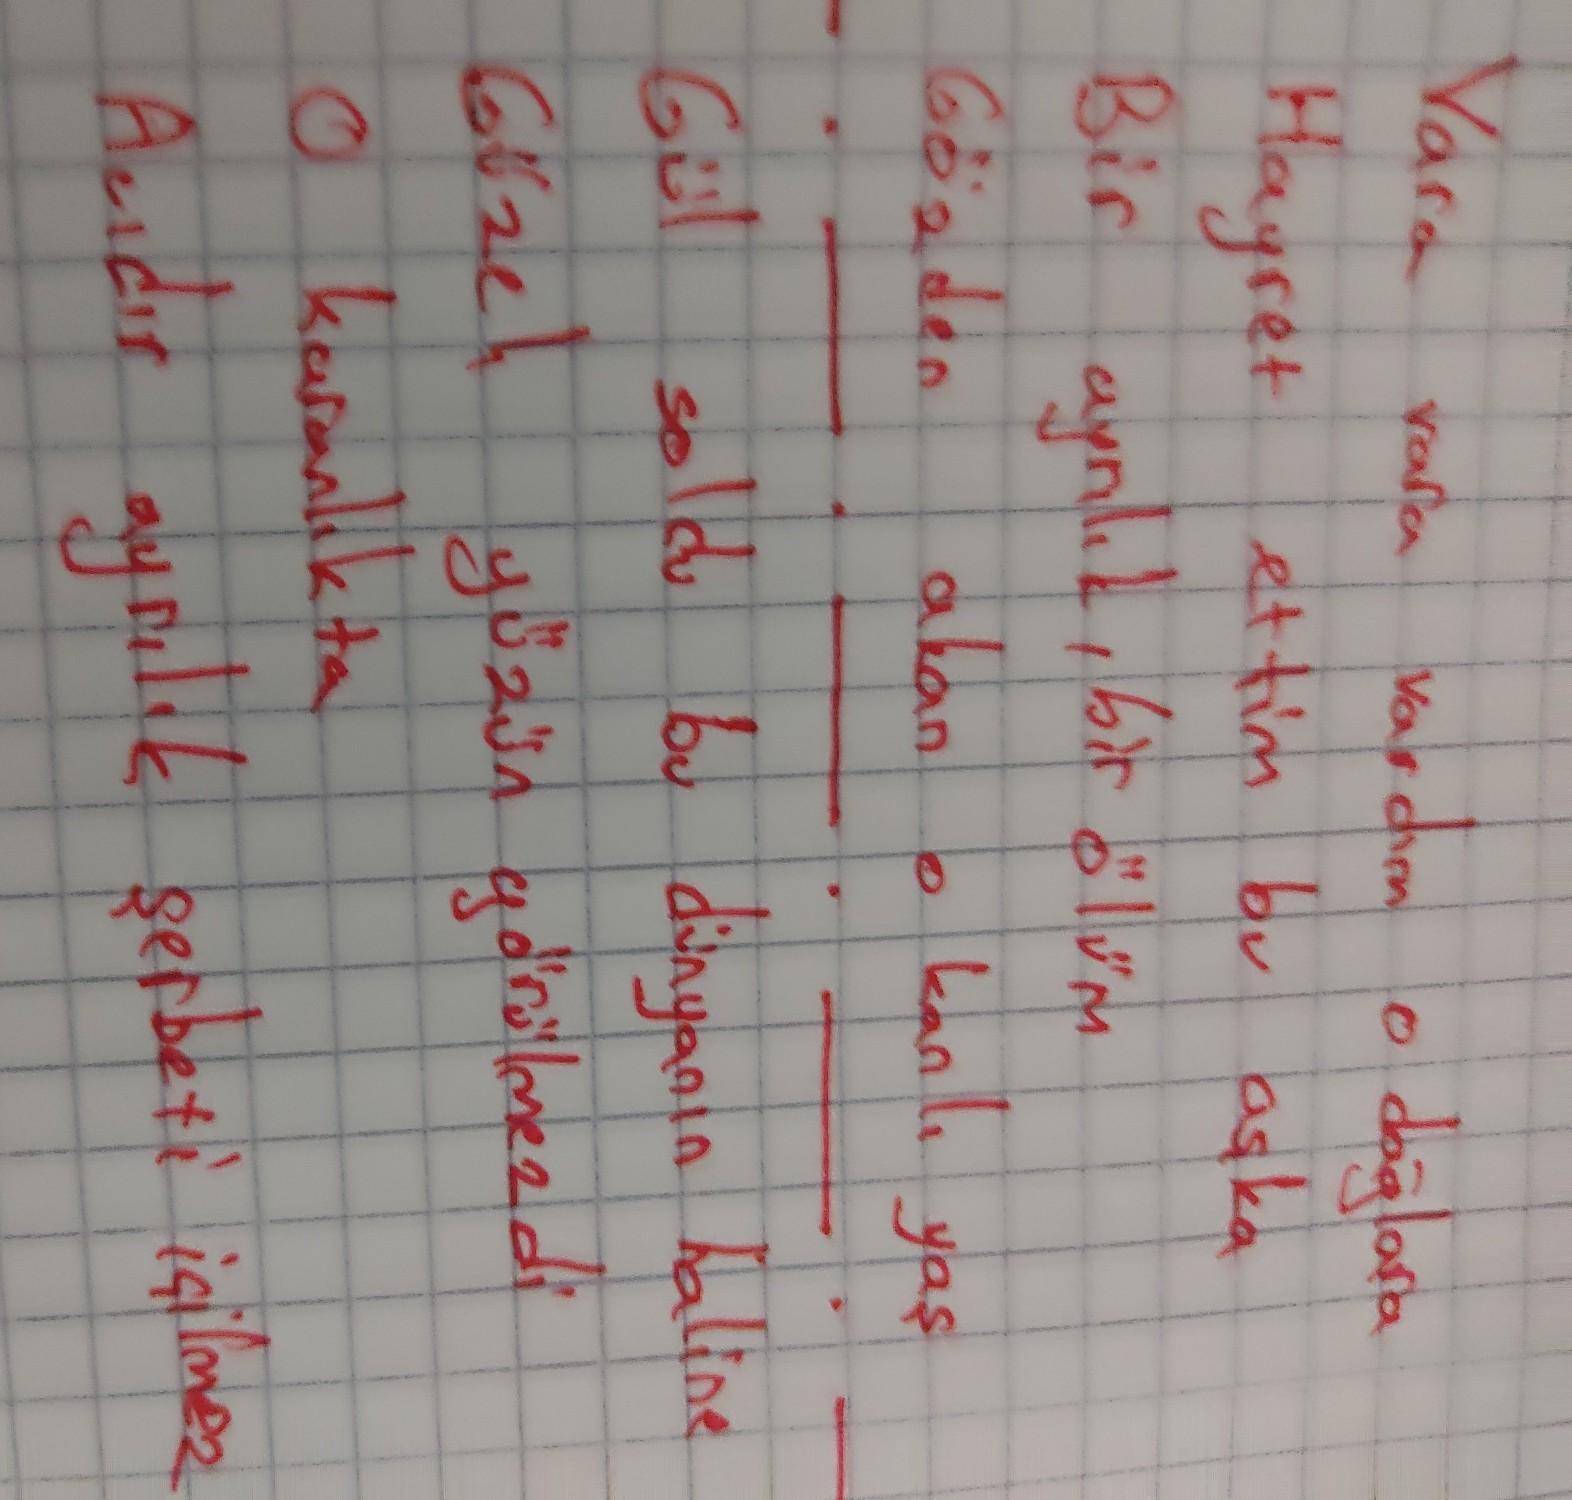 Vara vara vardım o dağlara
Hayret ettim bu aşka
Bir ayrılık, bir ölüm
Gözden akan o kanlı yaş
Gül soldu bu dünyanın haline
Güzel yüzün görülmezdi
O karanlıkta
Acıdır ayrılık şerbeti içilmez